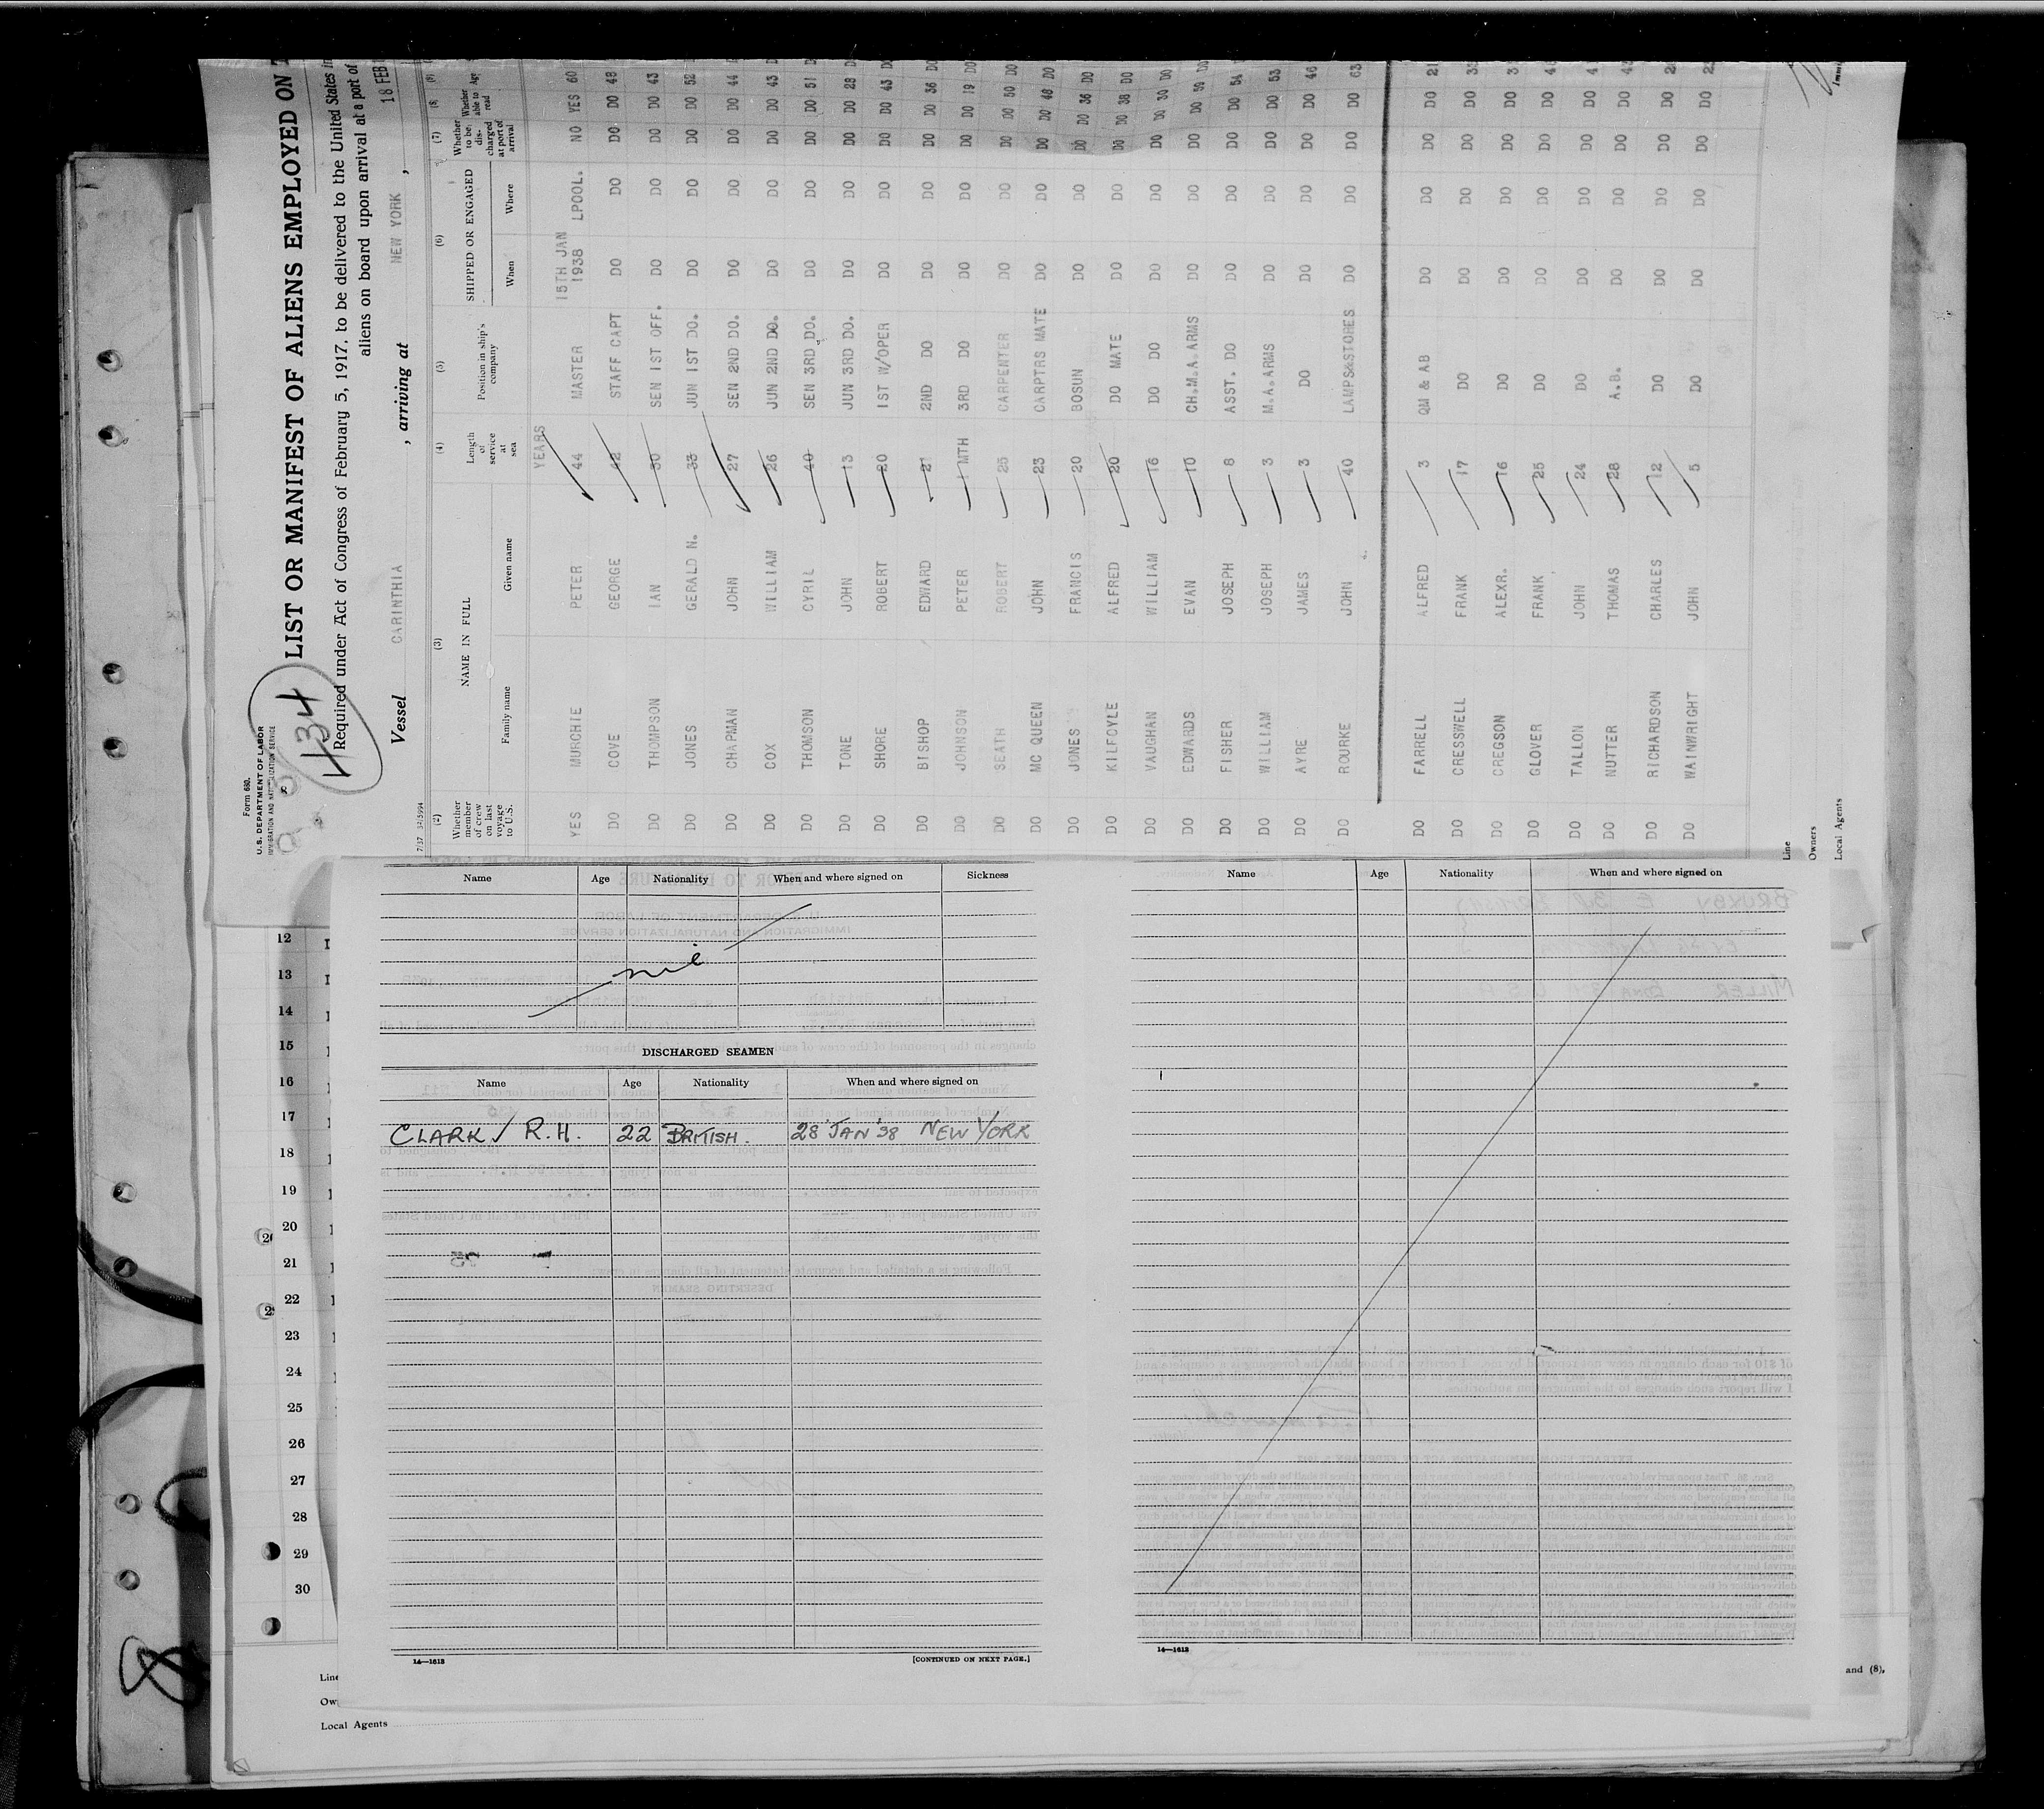 Form 680.
U.S. DEPARTMENT OF LABOR
IMMIGRATION AND NATURALIZATION SERVICE
434
LIST OR MANIFEST OF ALIENS EMPLOYED ON
Required under Act of Congress of February 5, 1917, to be delivered to the United States
aliens on board upon arrival at a port of
Vessel CARINTHIA , arriving at NEW YORK , 18 FEB
(2) (3) (4) (5) (6) (7) (8) (9)
Whether member of crew on last voyage to U.S. NAME IN FULL Length of service at sea Position in ship's company SHIPPED OR ENGAGED Whether to be discharged at port of arrival Whether able to read Age
Family name Given name When Where
YEARS 15TH JAN
YES MURCHIE PETER 44 MASTER 1938 LPOOL. NO YES 60
DO COVE GEORGE 42 STAFF CAPT DO DO DO DO 48
DO THOMPSON IAN 30 SEN 1ST OFF. DO DO DO DO 43
DO JONES GERALD N. 33 JUN 1ST DO. DO DO DO DO 52
DO CHAPMAN JOHN 27 SEN 2ND DO. DO DO DO DO 44
DO COX WILLIAM 26 JUN 2ND DO. DO DO DO DO 43
DO THOMSON CYRIL 40 SEN 3RD DO. DO DO DO DO 51
DO TONE JOHN 13 JUN 3RD DO. DO DO DO DO 28
DO SHORE ROBERT 20 1ST W/OPER DO DO DO DO 43 DO
DO BISHOP EDWARD 21 2ND DO DO DO DO DO 36 DO
DO JOHNSON PETER 1 MTH 3RD DO DO DO DO DO 19 DO
DO SEATH ROBERT 25 CARPENTER DO DO DO DO 50 DO
DO MC QUEEN JOHN 23 CARPTRS MATE DO DO DO DO 48 DO
DO JONES FRANCIS 20 BOSUN DO DO DO DO 36 DO
DO KILFOYLE ALFRED 20 DO MATE DO DO DO DO 38 DO
DO VAUGHAN WILLIAM 16 DO DO DO DO DO DO 30 DO
DO EDWARDS EVAN 10 CH.M.A.ARMS DO DO DO DO 59 DO
DO FISHER JOSEPH 8 ASST. DO DO DO DO DO 54
DO WILLIAM JOSEPH 3 M.A.ARMS DO DO DO DO 53
DO AYRE JAMES 3 DO DO DO DO DO 46
DO ROURKE JOHN 40 LAMPS&STORES DO DO DO DO 63
DO FARRELL ALFRED 3 QM & AB DO DO DO DO 21
DO CRESSWELL FRANK 17 DO DO DO DO DO
DO CREGSON ALEXR. 16 DO DO DO DO DO
DO GLOVER FRANK 25 DO DO DO DO DO
DO TALLON JOHN 24 DO DO DO DO DO
DO NUTTER THOMAS 28 A.B. DO DO DO DO
DO RICHARDSON CHARLES 12 DO DO DO DO DO
DO WAINWRIGHT JOHN 5 DO DO DO DO DO
Line
Owners
Local Agents
Name Age Nationality When and where signed on Sickness
nil
DISCHARGED SEAMEN
Name Age Nationality When and where signed on
CLARK R.H. 22 BRITISH. 28 JAN '38 NEW YORK
14—1613 [CONTINUED ON NEXT PAGE.]
Name Age Nationality When and where signed on
14—1613
12
13
14
15
16
17
18
19
20
21
22
23
24
25
26
27
28
29
30
Line
Local Agents
and (8),